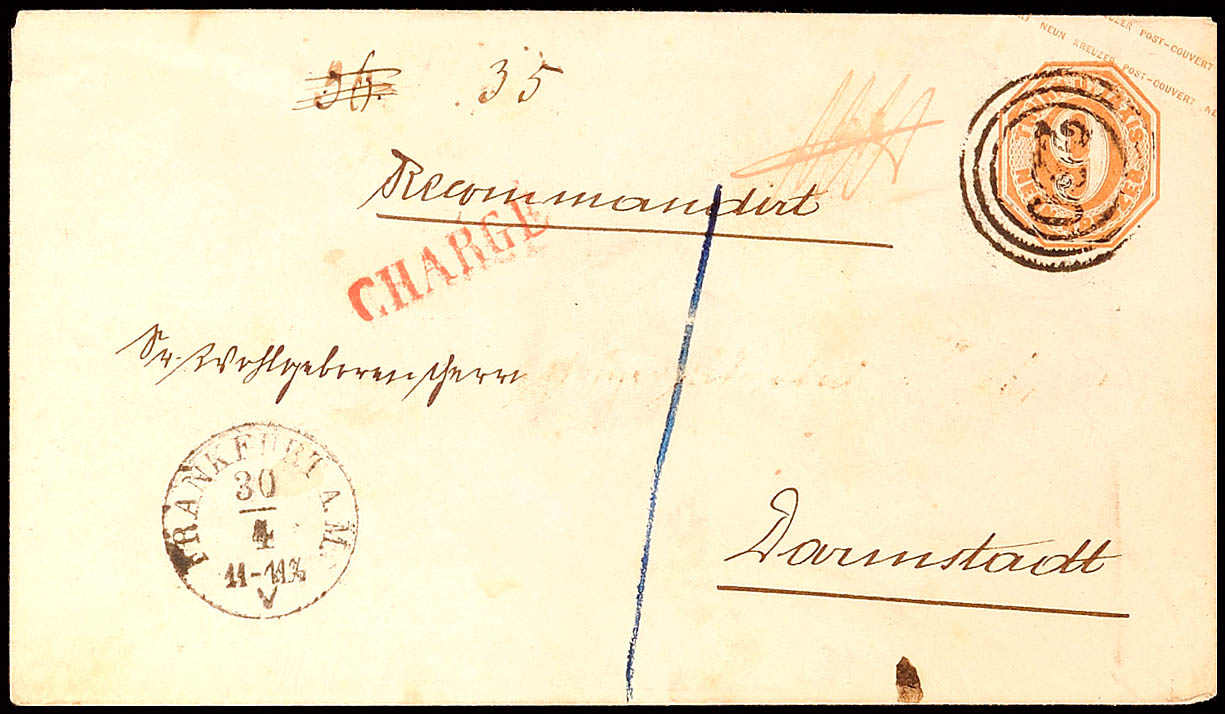 UZER POST-COUVERT
RT NEUN KREUZER POST-COUVERT NE
36. 35
Recommandirt
CHARGE
Sr. Wohlgeboren Herrn
FRANKFURT A. M.
30
4
11-11½
V
Darmstadt